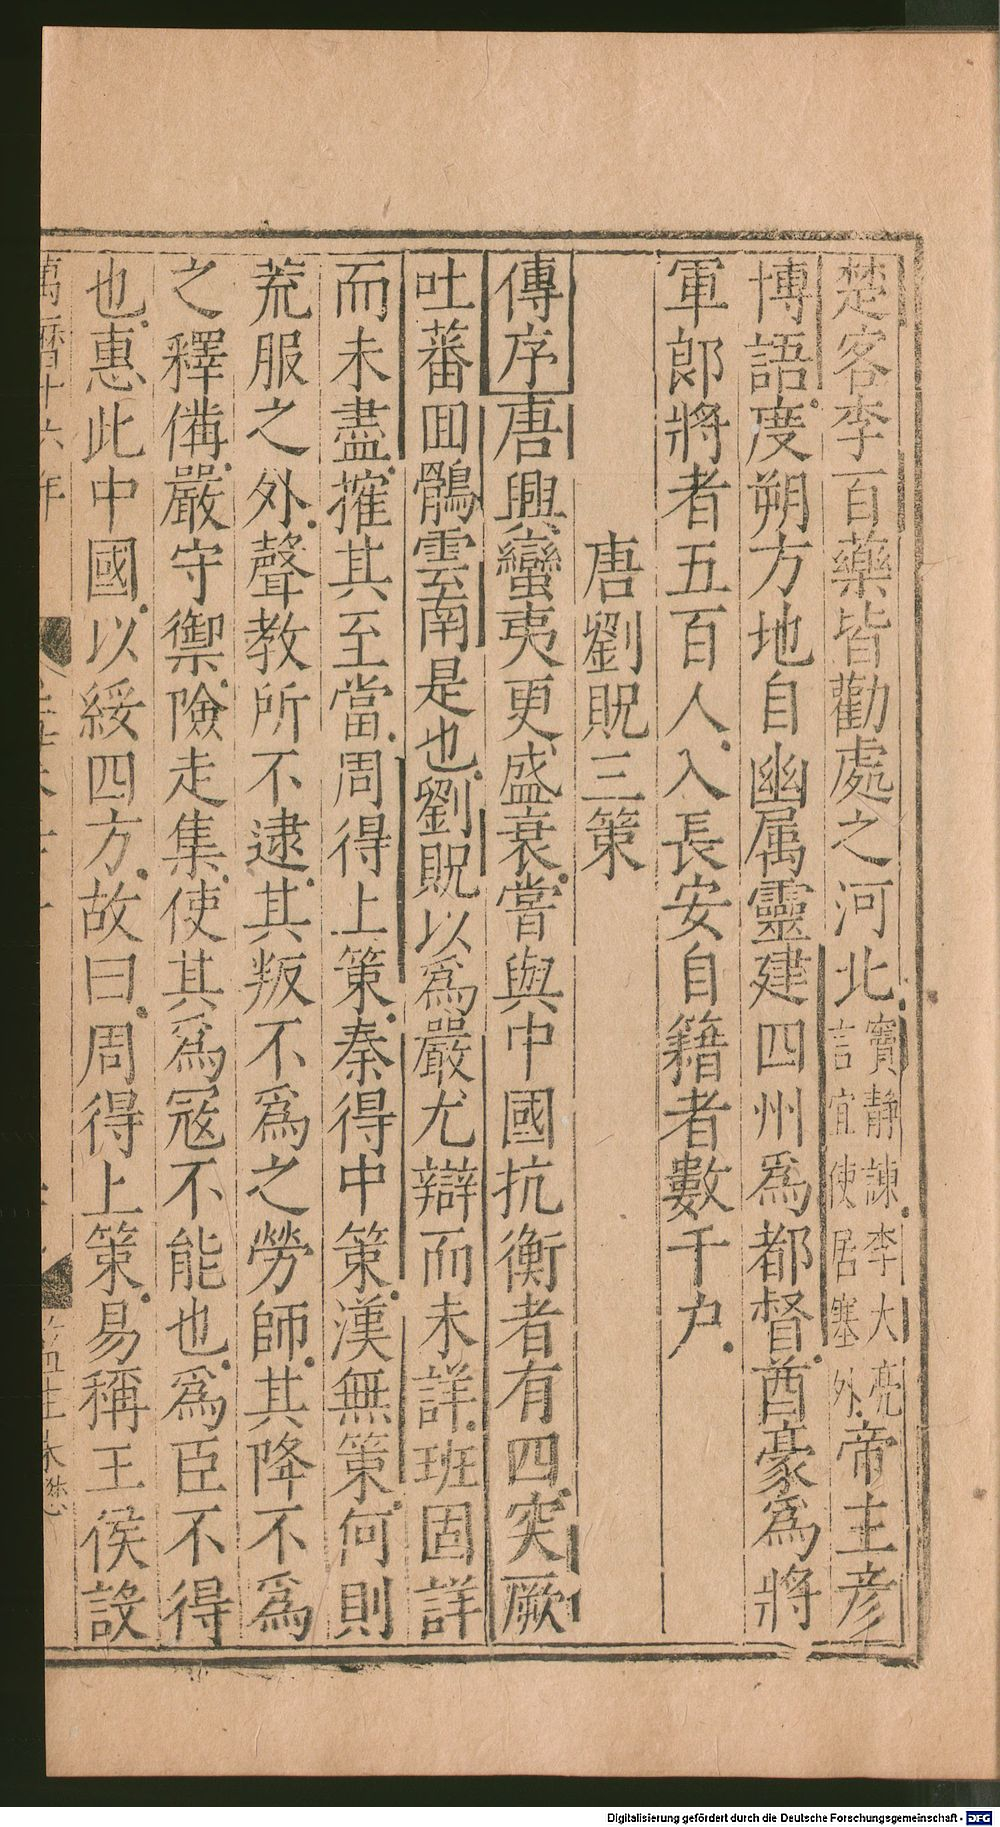 楚客李百藥皆勸處之河北竇靜諫李大亮言宜使居塞外帝主彦
博語度朔方地自幽属靈建四州爲都督酋豪爲將
軍郎將者五百人入長安自籍者數千户
唐劉貺三策
傳序唐興蠻夷更盛衰嘗與中國抗衡者有四突厥
吐蕃回鶻雲南是也劉貺以爲嚴尤辯而未詳班固詳
而未盡搉其至當周得上策秦得中策漢無策何則
荒服之外聲教所不逮其叛不爲之勞師其降不爲
之釋備嚴守禦險走集使其爲寇不能也爲臣不得
也惠此中國以綏四方故曰周得上策易稱王侯設
萬曆十六年
Digitalisierung gefördert durch die Deutsche Forschungsgemeinschaft - DFG